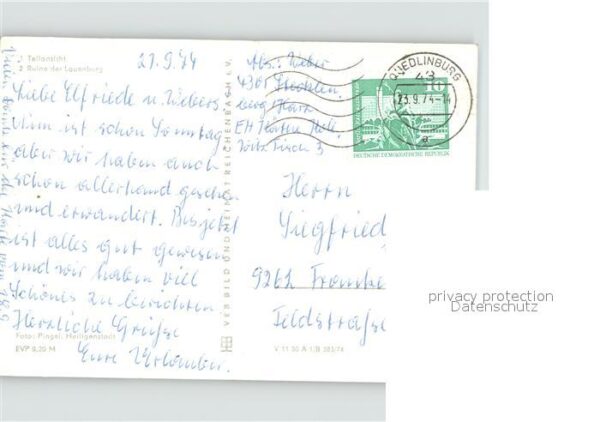 1 Teilansicht
2 Ruine der Lauenburg
21.9.74
Liebe Elfriede u. Webers
Nun ist schon Sonntag
aber wir haben auch
schon allerhand gesehen
und erwandert. Bis jetzt
ist alles gut gewesen
und wir haben viel
Schönes zu berichten
Herzliche Grüße
Eure Urlauber.
Foto: Pingel, Heiligenstadt
EVP 0,20 M
VEB BILD UND HEIMAT REICHENBACH I. V.
V 11 50 A 1/B 383/74
Abs.: Weber
4301 Stecklen
berg Harz
EH
3
QUEDLINBURG
43
23.9.74
a
10
DEUTSCHE DEMOKRATISCHE REPUBLIK
Herrn
Siegfried
9262 Franken
Feldstraße
privacy protection
Datenschutz